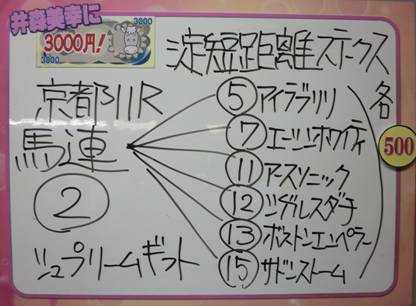 井森美幸に
3000円!
3000
3000
淀短距離ステークス
京都11R
馬連
②
シュプリームギフト
⑤アイラブリリ
⑦エーシンホワイティ
⑪アースソニック
⑫シゲルスダチ
⑬ボストンエンペラー
⑮サドンストーム
各
500